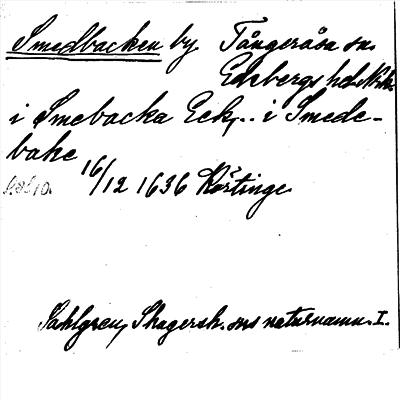 Smedbacken by Tångeråsa sn.
Edsbergs hd. Närke
i Smebacka Eck, .. i Smede-
bake
16/12 1636 Körtinge
Sahlgren, Skagersh. sns naturnamn. I.